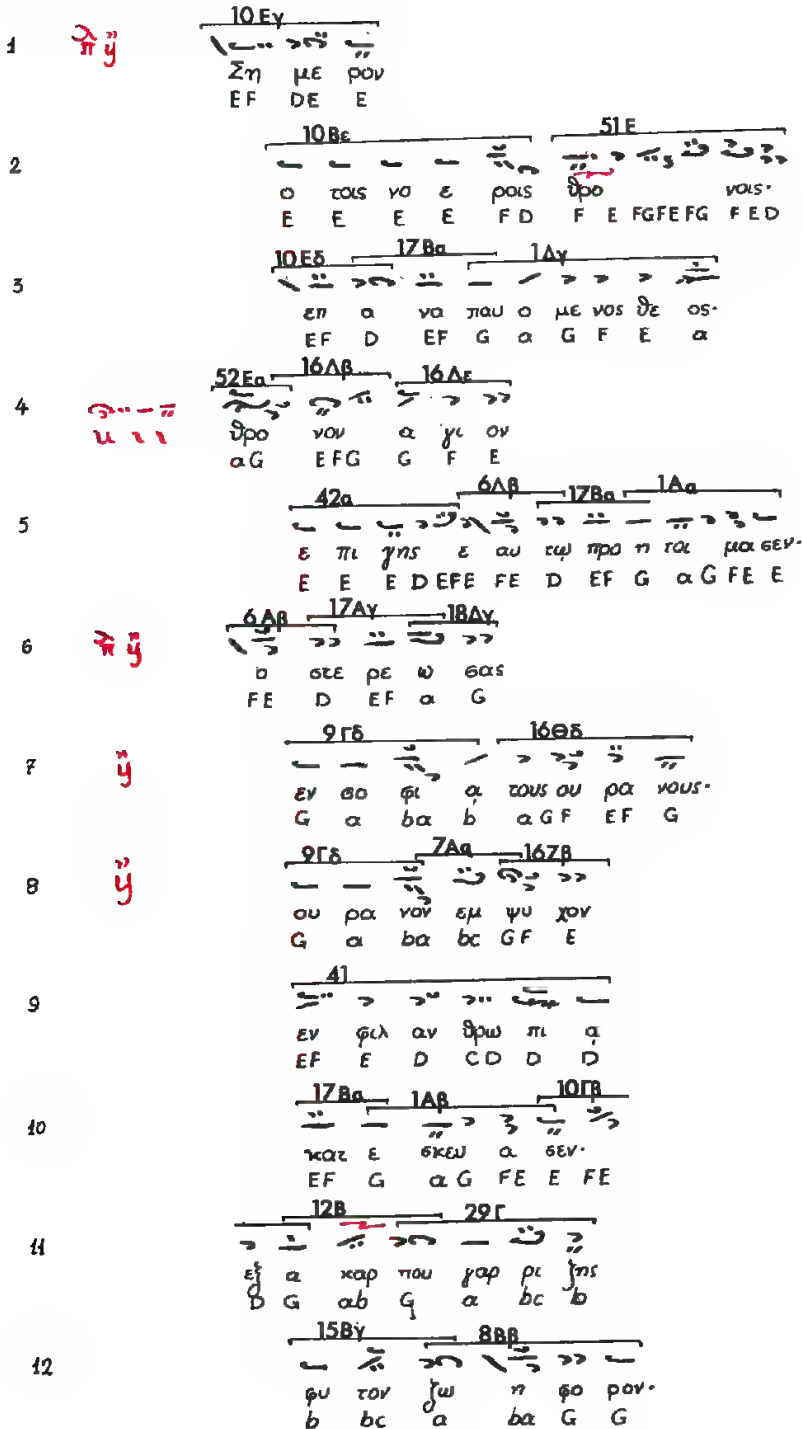 10 Εγ
1
Ση με ρον
EF DE E
10 Βε 51 Ε
2
ο τοις νο ε ροις θρο νοις·
E E E E F D F E FGFEFG F E D
10 Εδ 17 Βα 1 Δγ
3
επ α να παυ ο με νος θε ος·
EF D EF G a G F E a
52 Εα 16 Λβ 16 Δε
4
θρο νον α γι ον
a G E F G G F E
42α 6 Λβ 17 Βα 1 Αα
5
ε πι γης ε αυ τῳ προ η τοι μα σεν·
E E E D EFE FE D EF G a G FE E
6 Αβ 17 Αγ 18 Δγ
6
ο στε ρε ω σας
FE D EF a G
9 Γδ 16 Θδ
7
εν σο φι α τους ου ρα νους·
G a ba b a G F EF G
9 Γδ 7 Αα 16 Ζβ
8
ου ρα νον εμ ψυ χον
G a ba bc GF E
41
9
εν φιλ αν θρω πι α
EF E D CD D D
17 Βα 1 Αβ 10 Γβ
10
κατ ε σκευ α σεν·
EF G a G FE E FE
12 Β 29 Γ
11
εξ α καρ που γαρ ρι ζης
D G ab G a bc b
15 Βγ 8 Ββ
12
φυ τον ζω η φο ρον·
b bc a ba G G